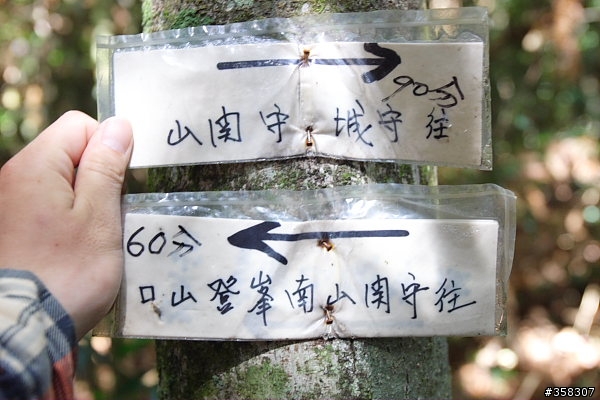 90分
往守城 守関山
60分
往守関山南峯登山口
#358307